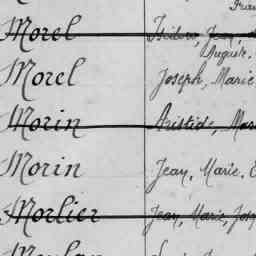 Morel Isidore, Jean,
Auguste,
Morel Joseph, Marie
Morin Aristide, Mar
Morin Jean, Marie,
Morlier Jean, Marie, Jos